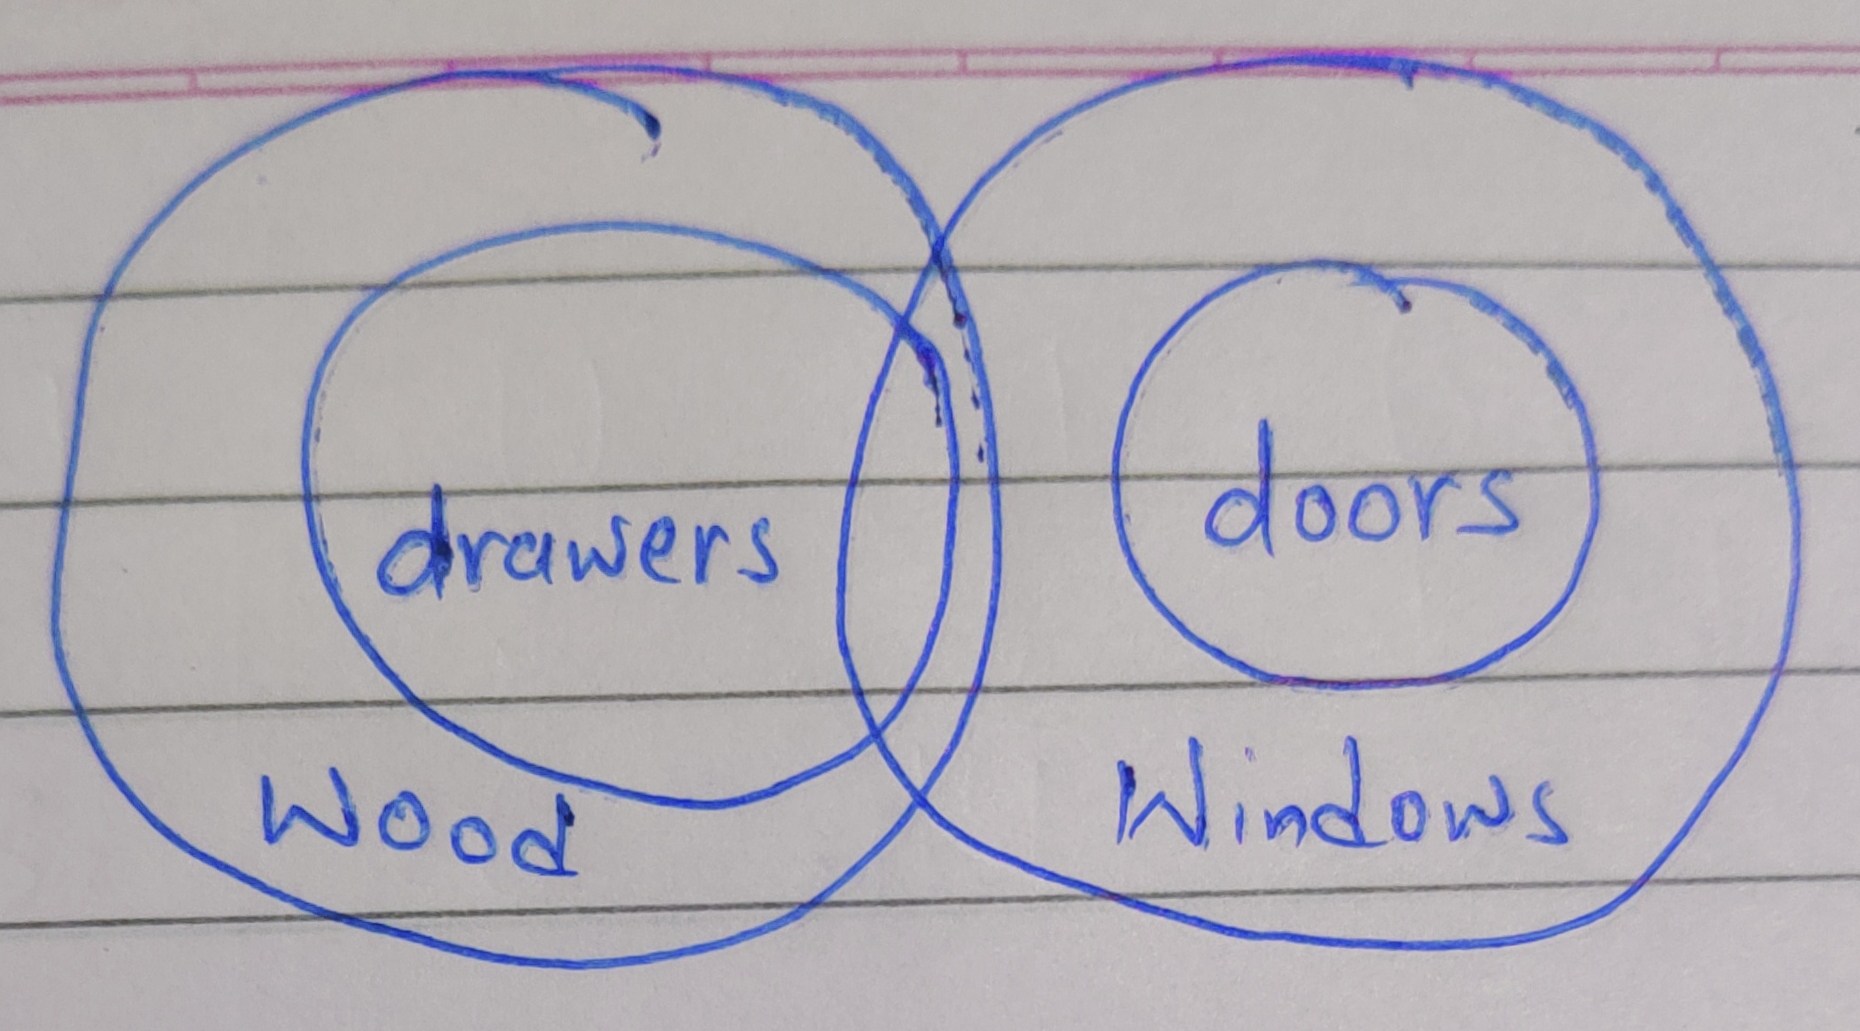 drawers
doors
Wood
Windows